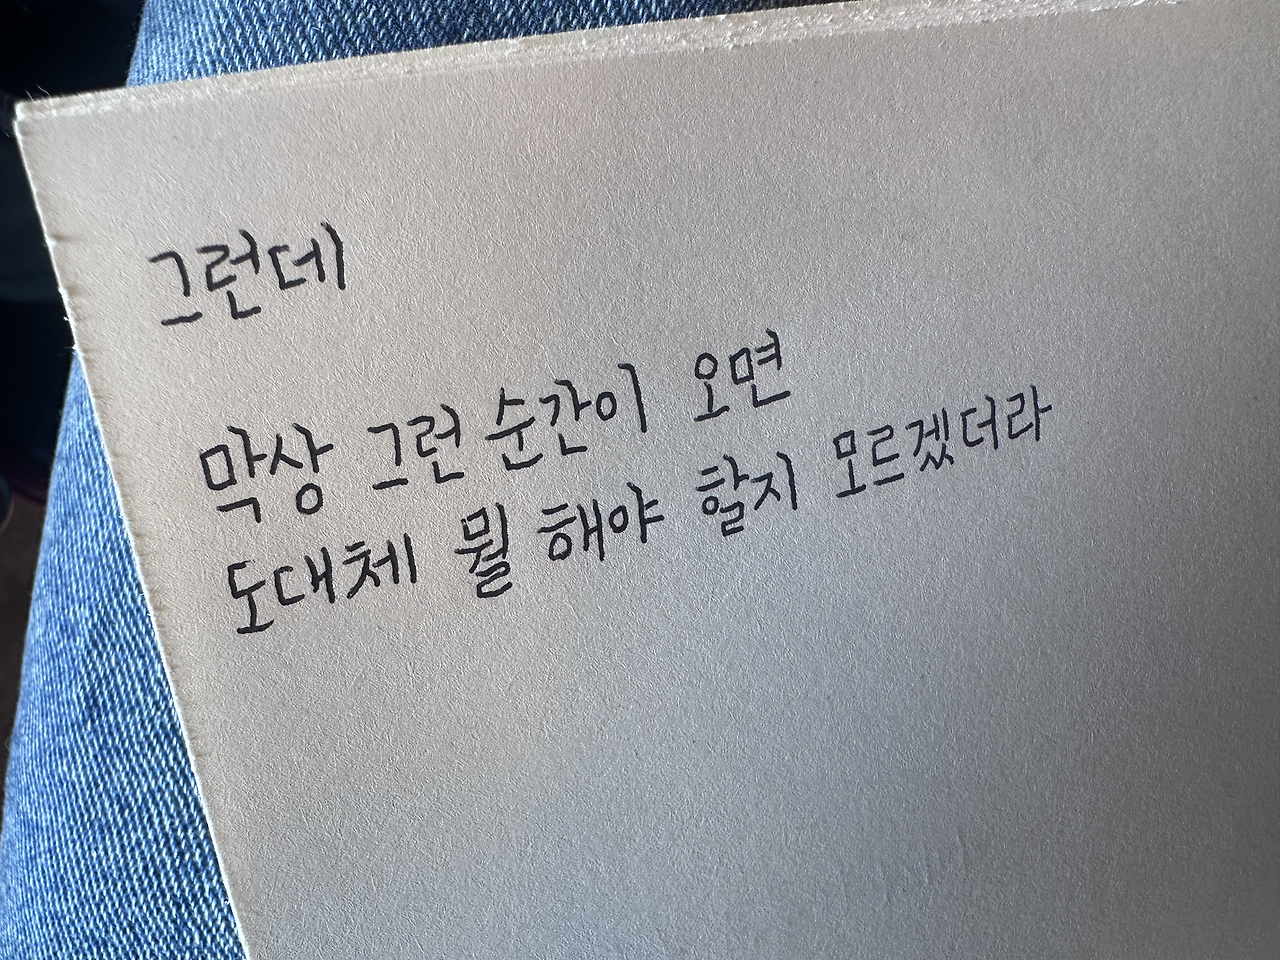 그런데
막상 그런 순간이 오면
도대체 뭘 해야 할지 모르겠더라